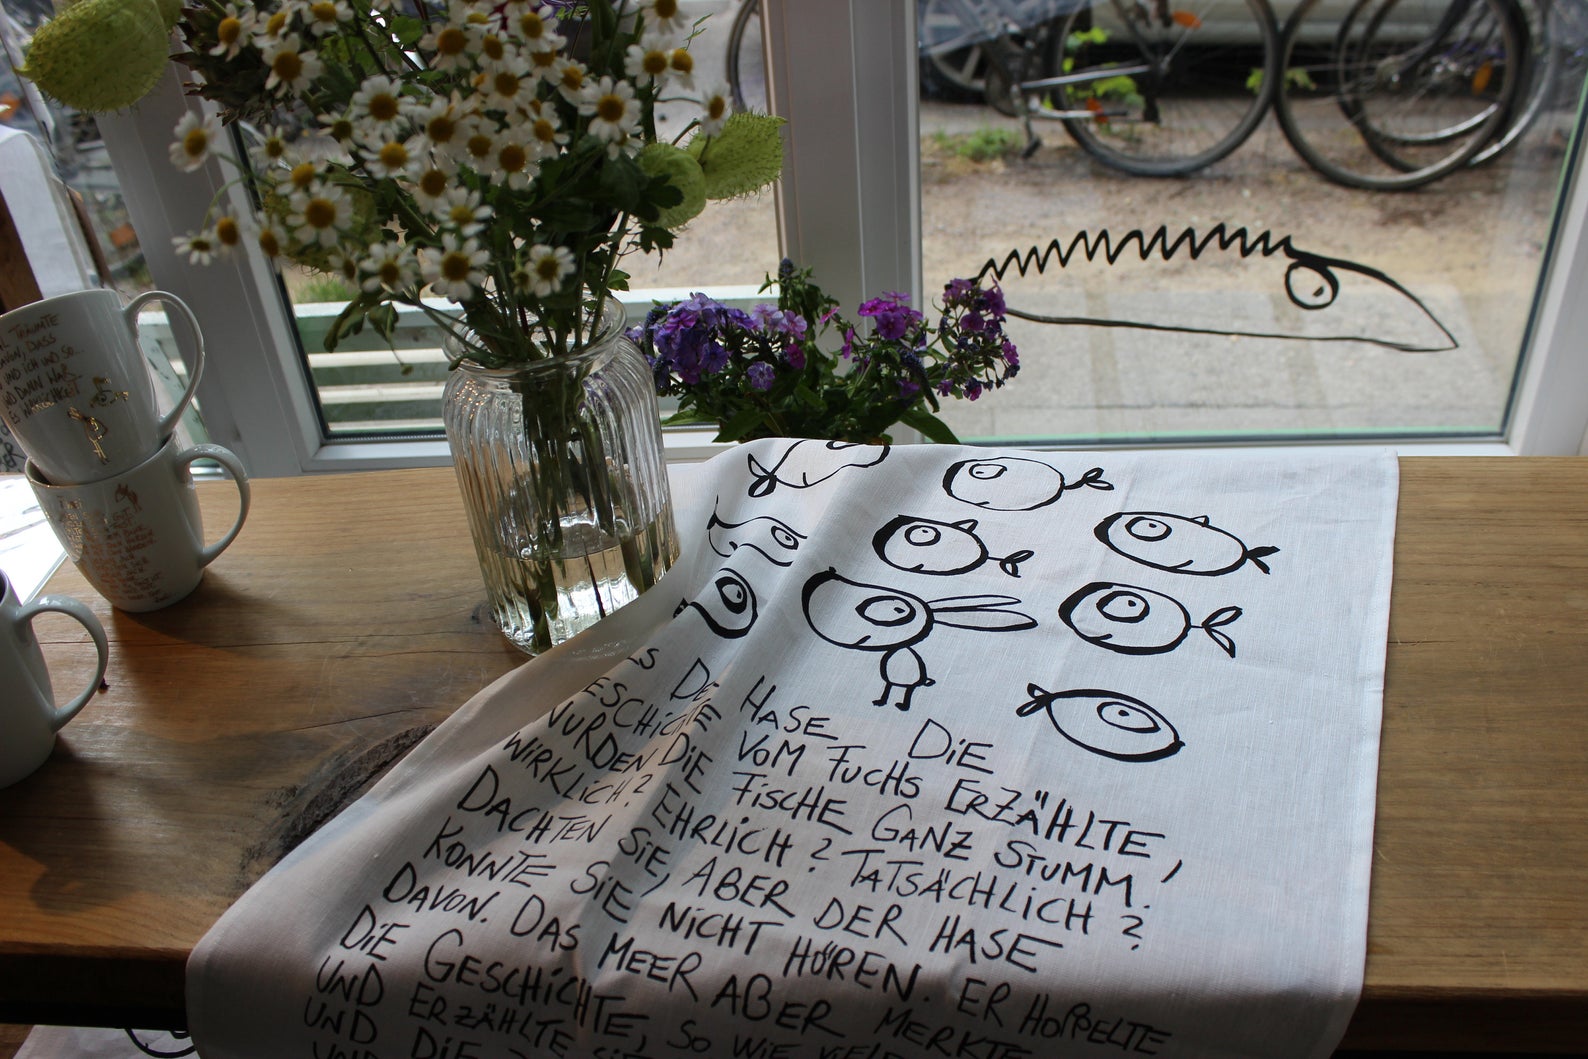 TRÄUMTE
DAVON, DASS
UND ICH UND SO...
UND DANN WAR
ES WIRKLICHKEIT
ALS DER HASE DIE
GESCHICHTE VOM FUCHS ERZÄHLTE,
WURDEN DIE FISCHE GANZ STUMM.
WIRKLICH? EHRLICH? TATSÄCHLICH?
DACHTEN SIE, ABER DER HASE
KONNTE SIE NICHT HÖREN. ER HOPPELTE
DAVON. DAS MEER ABER MERKTE
DIE GESCHICHTE, SO WIE VIELE
UND ERZÄHLTE SIE
UND DIE
UND